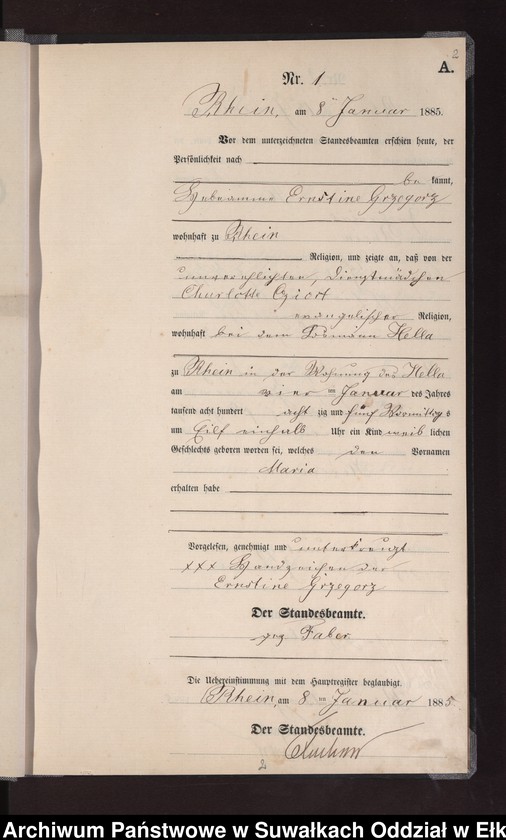 2
A.
Nr. 1
Rhein, am 8 Januar 1885.
Vor dem unterzeichneten Standesbeamten erschien heute, der
Persönlichkeit nach
be kannt,
Hebeamme Ernstine Grzegorz
wohnhaft zu Rhein
Religion, und zeigte an, daß von der
unverehlichten, Dienstmädchen
Charlotte Cziort
evangelischer Religion,
wohnhaft bei dem Losmann Hella
zu Rhein in der Wohnung des Hella
am vier ten Januar des Jahres
tausend acht hundert acht zig und fünf Vormittags
um Eilf einhalb Uhr ein Kind weib lichen
Geschlechts geboren worden sei, welches den Vornamen
Maria
erhalten habe
Vorgelesen, genehmigt und unterkreuzt
XXX Handzeichen der
Ernstine Grzegorz
Der Standesbeamte.
gez Faber
Die Uebereinstimmung mit dem Hauptregister beglaubigt.
Rhein, am 8 ten Januar 1885
Der Standesbeamte.
2
Archiwum Państwowe w Suwałkach Oddział w Ełk